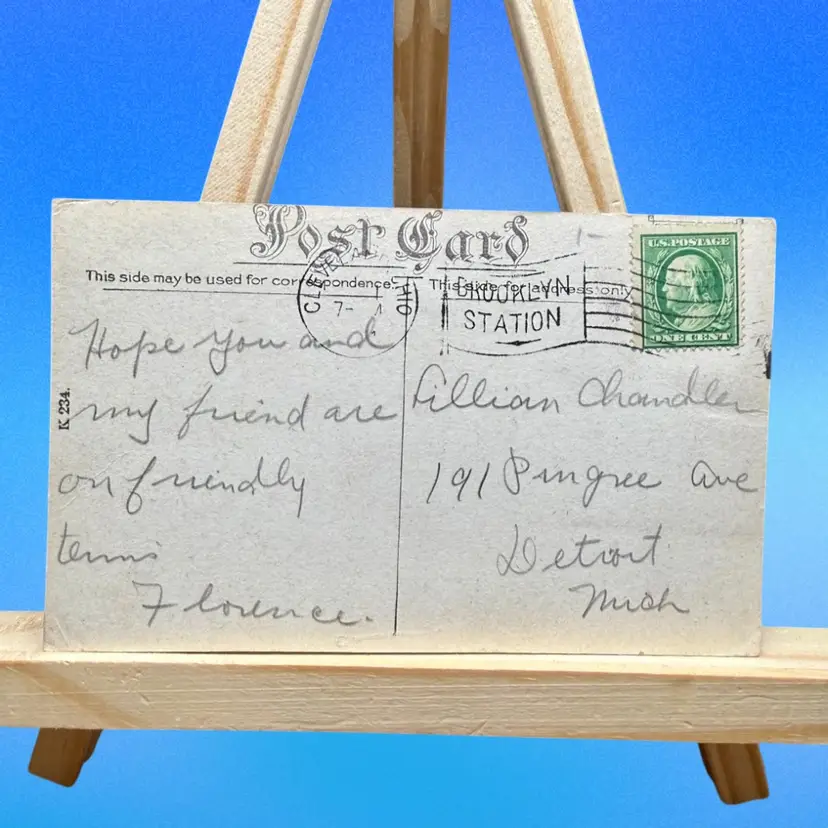 Post Card
This side may be used for correspondence.
This side for address only
CLEVE OHIO
7-
BROOKLYN
STATION
U.S. POSTAGE
ONE CENT
K. 234.
Hope you and
my friend are
on friendly
terms
Florence.
Lillian Chandler
191 Pingree Ave
Detroit
Mich